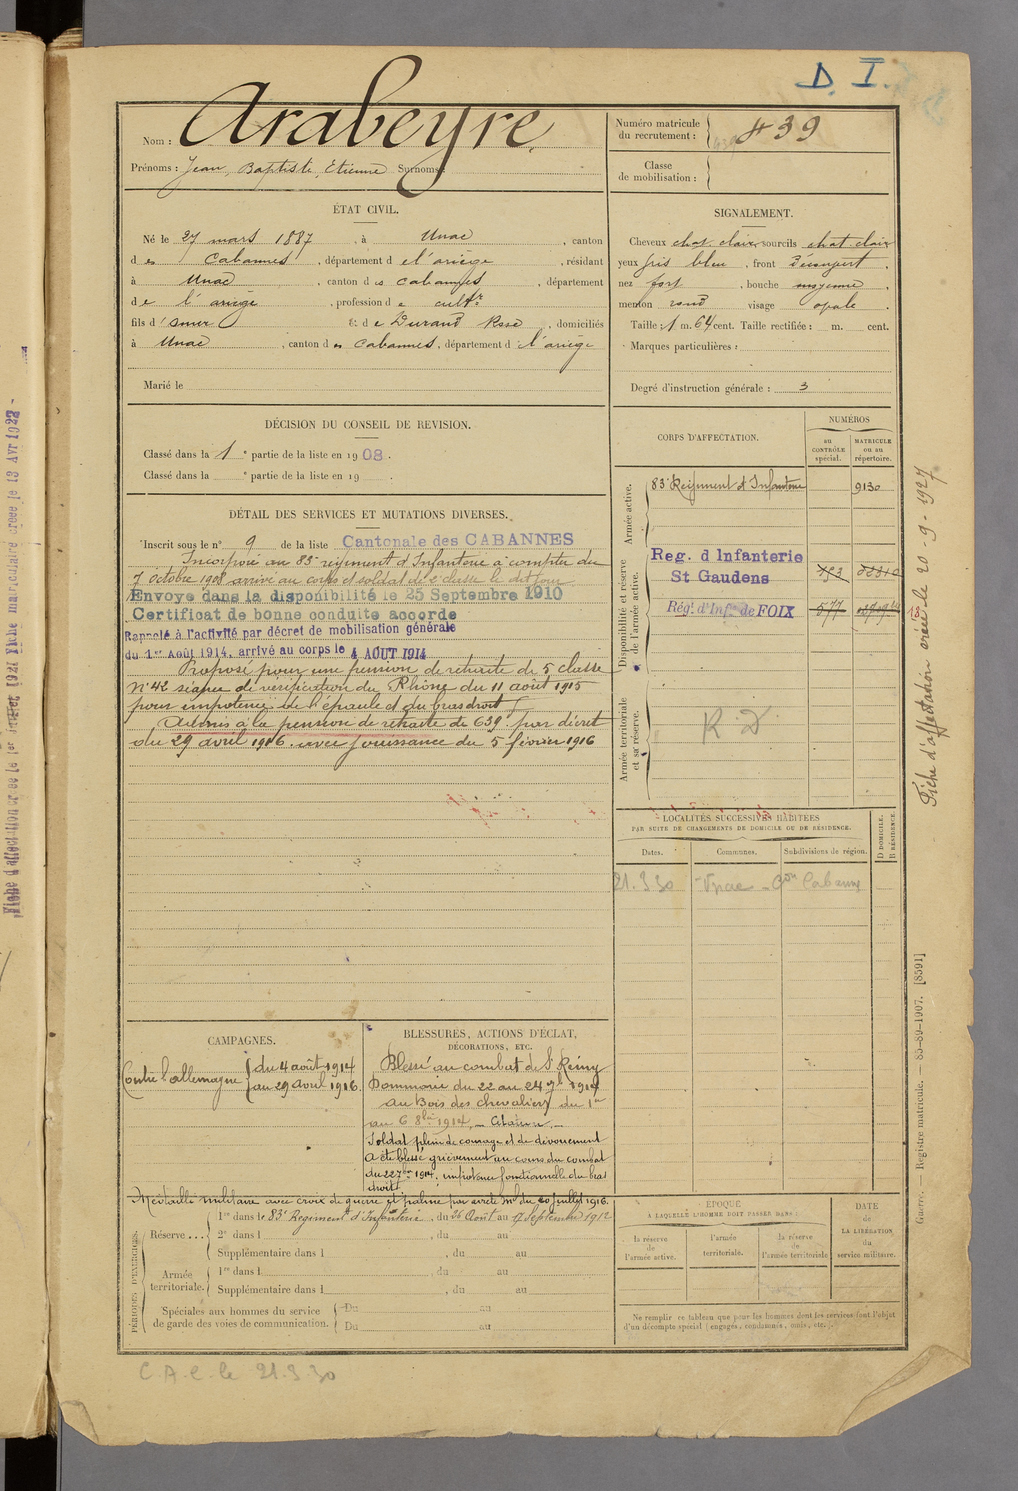 D. I.
Nom : Arabeyre
Prénoms : Jean, Baptiste, Etienne Surnoms :
Numéro matricule
du recrutement : 439
Classe
de mobilisation :
ÉTAT CIVIL.
Né le 27 mars 1887, à Unac, canton
des Cabannes, département de l'ariège, résidant
à Unac, canton des Cabannes, département
de l'ariège, profession de cultr
fils d' et de Durand Rose, domiciliés
à Unac, canton des Cabannes, département de l'ariège
Marié le
SIGNALEMENT.
Cheveux chat. clair sourcils chat. clair
yeux gris bleu, front Découvert,
nez fort, bouche moyenne,
menton rond visage ovale.
Taille : 1 m. 64 cent. Taille rectifiée : m. cent.
Marques particulières :
Degré d'instruction générale : 3
DÉCISION DU CONSEIL DE REVISION.
Classé dans la 1e partie de la liste en 1908.
Classé dans la e partie de la liste en 19 .
DÉTAIL DES SERVICES ET MUTATIONS DIVERSES.
Inscrit sous le n° 9 de la liste Cantonale des CABANNES
Incorporé au 83e régiment d'Infanterie à compter du
7 octobre 1908 arrivé au corps et soldat de 2e classe le dit jour
Envoyé dans la disponibilité le 25 Septembre 1910
Certificat de bonne conduite accordé
Rappelé à l'activité par décret de mobilisation générale
du 1er Août 1914, arrivé au corps le 4 AOUT 1914
Proposé pour une pension de retraite de 5e classe
N°42 séance de vérification du Rhône du 11 août 1915
pour impotence de l'épaule et du bras droit
Admis à la pension de retraite de 639f. par décret
du 29 avril 1916. avec jouissance du 5 février 1916
CORPS D'AFFECTATION.
NUMÉROS
au
CONTRÔLE
spécial.
MATRICULE
ou au
répertoire.
Armée active.
83e Régiment d'Infanterie 9130
Disponibilité et réserve
de l'armée active.
Reg. d Infanterie
St Gaudens
Rég. d'Infie de FOIX 577
Armée territoriale
et sa réserve.
R D
LOCALITÉS SUCCESSIVES HABITÉES
PAR SUITE DE CHANGEMENTS DE DOMICILE OU DE RÉSIDENCE.
Dates.
Communes.
Subdivisions de région.
D DOMICILE.
R RÉSIDENCE.
21.3.30 Unac Con Cabannes
CAMPAGNES.
Contre l'allemagne du 4 août 1914
au 29 avril 1916.
BLESSURES, ACTIONS D'ÉCLAT,
DÉCORATIONS, ETC.
Blessé au combat de St Rémy
Dommarie du 22 au 24 7bre 1914
au Bois des chevaliers du 1er
au 6 8bre 1914. — Citation. —
Soldat plein de courage et de dévouement
A été blessé grièvement au cours du combat
du 22 7bre 1914. impotence fonctionnelle du bras
droit.
Médaille militaire avec croix de guerre et palme par arrêté ml du 20 juillet 1916.
PÉRIODES D'EXERCICES.
Réserve...
1re dans le 83e Régiment d'Infanterie, du 26 Août au 17 Septembre 1912
2e dans l , du au
Supplémentaire dans l , du au
Armée
territoriale.
1re dans l , du au
Supplémentaire dans l , du au
Spéciales aux hommes du service
de garde des voies de communication.
Du au
Du au
ÉPOQUE
À LAQUELLE L'HOMME DOIT PASSER DANS :
la réserve
de
l'armée active.
l'armée
territoriale.
la réserve
de
l'armée territoriale
DATE
de
LA LIBÉRATION
du
service militaire.
Ne remplir ce tableau que pour les hommes dont les services font l'objet
d'un décompte spécial (engagés, condamnés, omis, etc.).
C.A.C. le 21.3.30
Fiche d'affectation créée le 20-9-1927
Guerre. — Registre matricule. — 85-89-1907. [8591]
Fiche d'affectation créée le 1er Juillet 1921 Fiche matriculaire créée le 13 Avr 1922